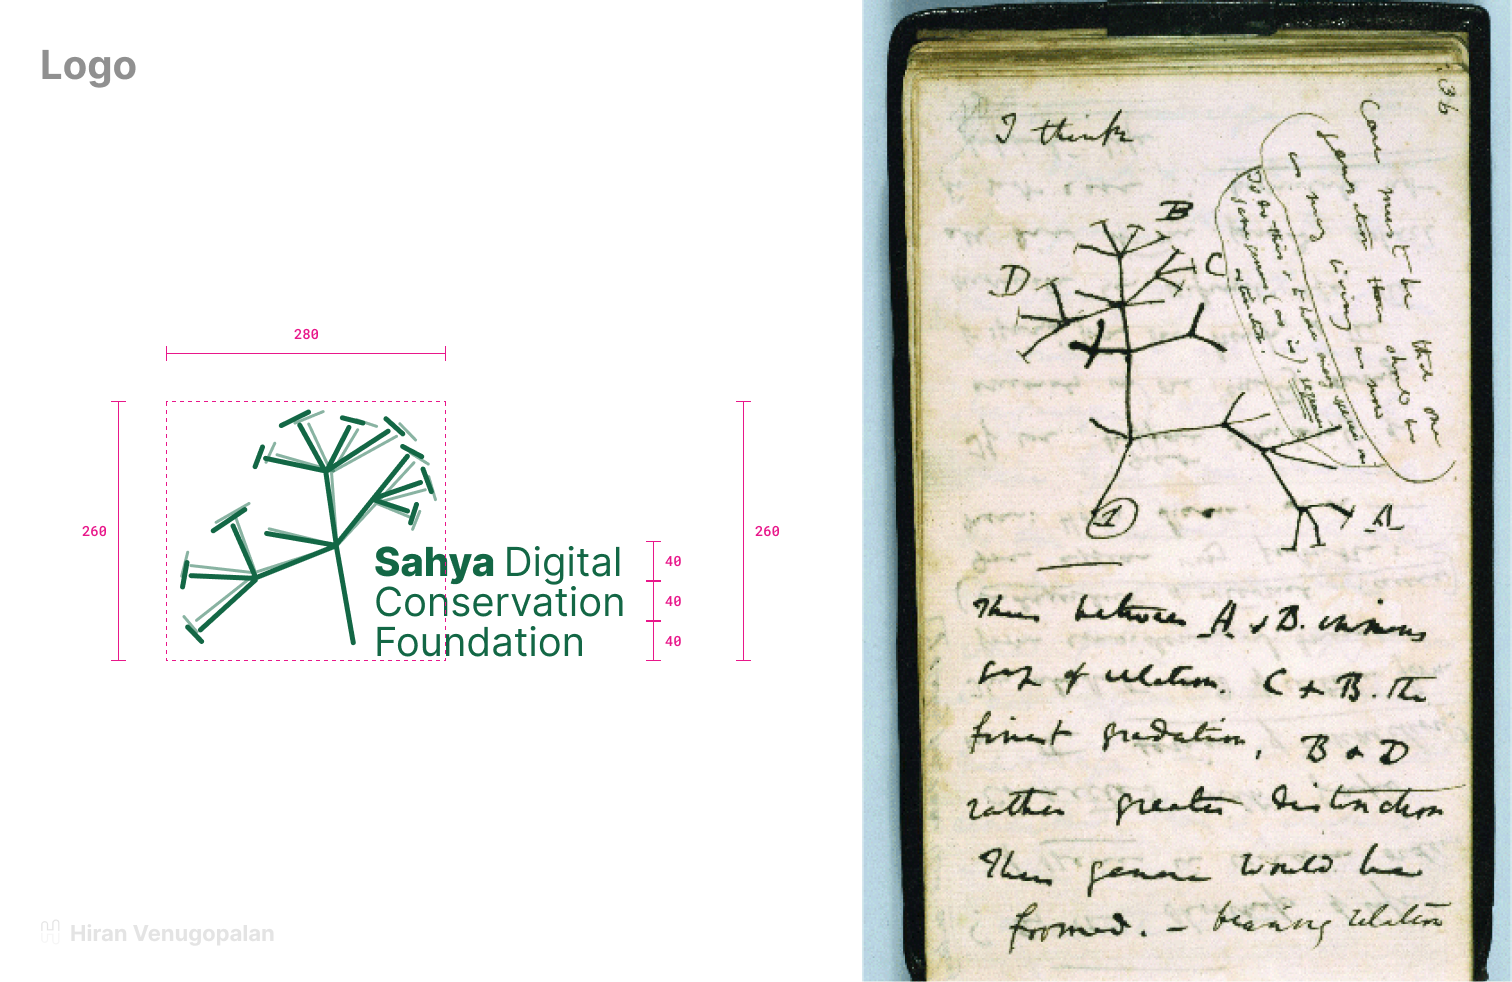 Logo
280
260
260
Sahya Digital
Conservation
Foundation
40
40
40
Hiran Venugopalan
36
I think
Case must be that one
generation then should be
as many living as now
To do this & to have many species in
same genus (as is) requires
extinction.
B
C
D
A
1
Thus between A & B. immense
gap of relation. C & B. the
finest gradation, B & D
rather greater distinction
Thus genera would be
formed. — bearing relation